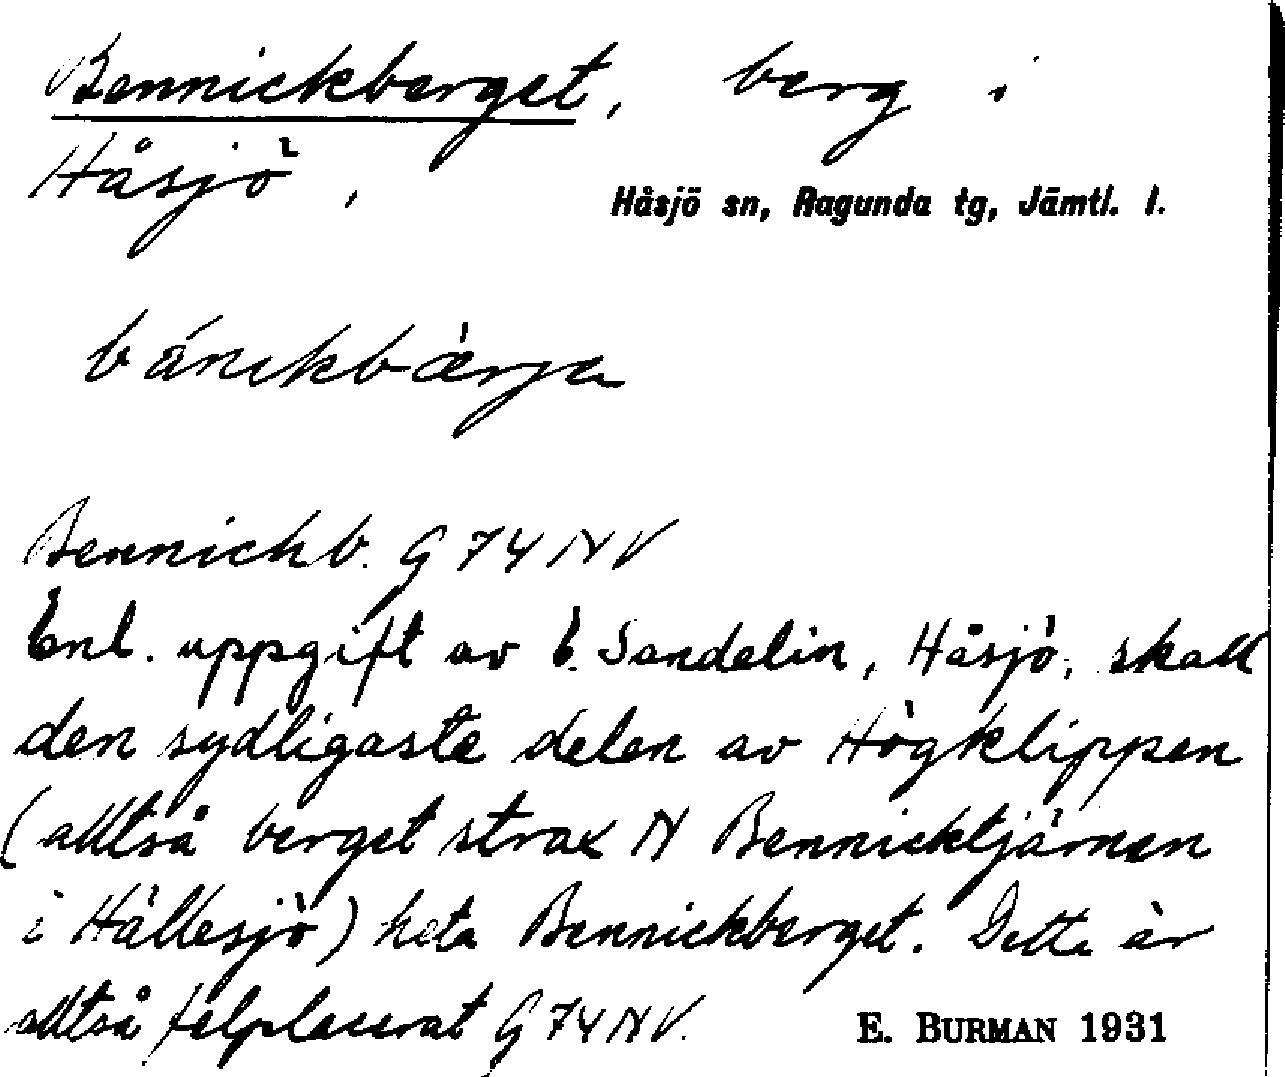 Bennickberget, berg i
Håsjö,
Håsjö sn, Ragunda tg, Jämtl. l.
bánikbærja
Bennickb. G 74 NV
Enl. uppgift av E. Sandelin, Håsjö, skall
den sydligaste delen av Högklippen
(alltså berget strax N Bennicktjärnen
i Hällesjö) heta Bennickberget. Detta är
alltså felplacerat G 74 NV.
E. BURMAN 1931